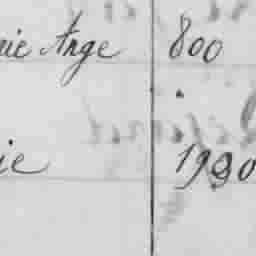 nie Ange 800
ie 1990